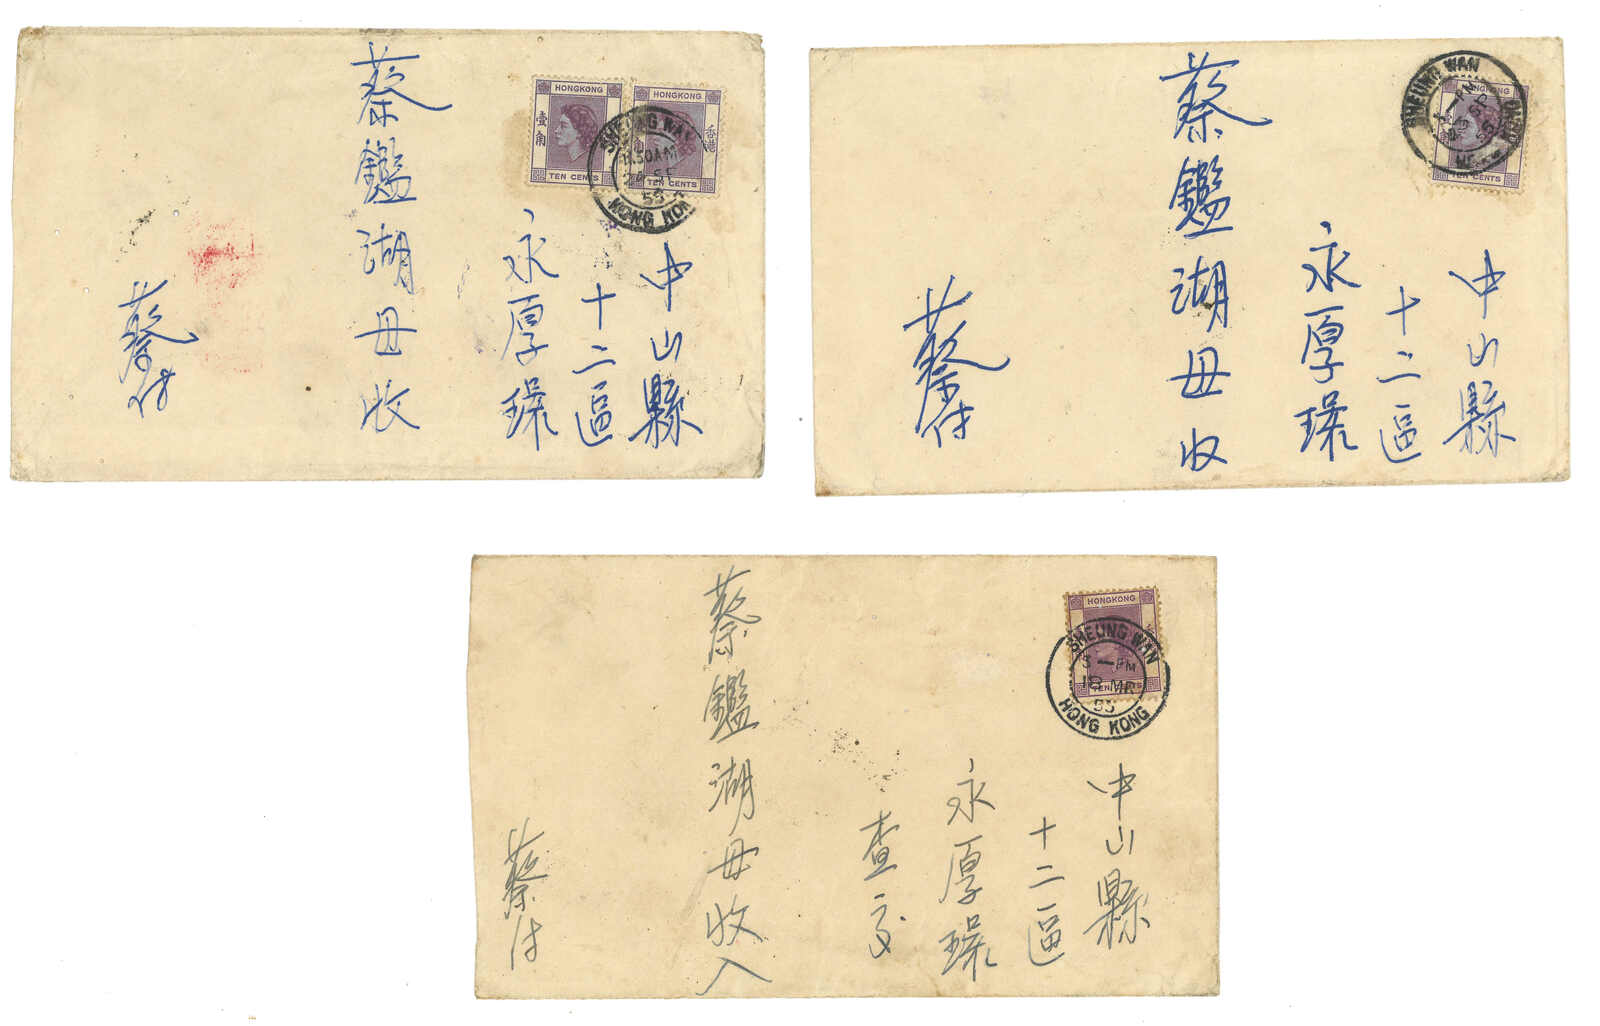 HONGKONG
壹角
TEN CENTS
HONGKONG
香港
TEN CENTS
SHEUNG WAN
11.30AM
HONG KON
中山縣
十二區
永厚環
蔡鑑湖母收
蔡付
SHEUNG WAN
NGKONG
CENTS
中山縣
十二區
永厚環
蔡鑑湖母收
蔡付
HONGKONG
TEN CENTS
SHEUNG WAN
5—PM
18 MR
55
HONG KONG
中山縣
十二區
永厚環
查交
蔡鑑湖母收入
蔡付